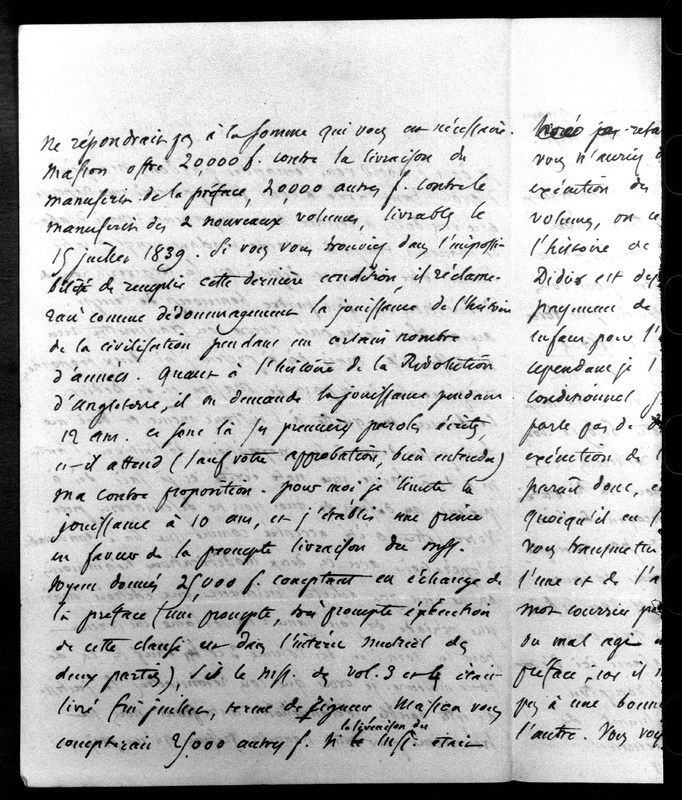 ne répondrait pas à la somme qui vous est nécessaire.
Masson offre 20,000 f. contre la livraison du
manuscrit de la préface, 20,000 autres f. contre le
manuscrit des 2 nouveaux volumes, livrables le
15 juillet 1839. Si vous vous trouviez dans l'impossi-
bilité de remplir cette dernière condition, il réclame-
rait comme dédommagement la jouissance de l'histoire
de la civilisation pendant un certain nombre
d'années. Quant à l'histoire de la Révolution
d'Angleterre, il en demande la jouissance pendant
12 ans. Ce sont là ses premières paroles écrites,
et il attend (sauf votre approbation, bien entendu)
ma contre proposition. Pour moi je limite la
jouissance à 10 ans, et j'établis une prime
en faveur de la prompte livraison du mss.
25,000 f. comptant en échange de
la préface (une prompte, très prompte exécution
de cette clause est dans l'intérêt matériel des
deux parties), si le mss. des vol. 3 et 4 était
livré fin juillet, terme de rigueur Masson vous
compterait 25,000 autres f. Si la livraison du mss. était
pas retar
vous n'auriez
exécution des
volumes, on
l'histoire de
Didier est
payement de
enfans pour l'
cependant je l'
conditionnel
parle pas de
exécution de l
paraît donc,
Quoiqu'il en
vous transmettre
l'une et de l'a
mon courrier
ou mal agi
préface; car il
pas à une bonne
l'autre. Vous voy